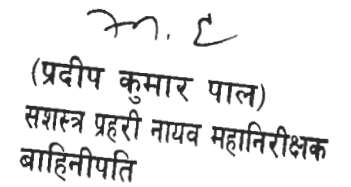 (प्रदीप कुमार पाल)
सशस्त्र प्रहरी नायव महानिरीक्षक
बाहिनीपति